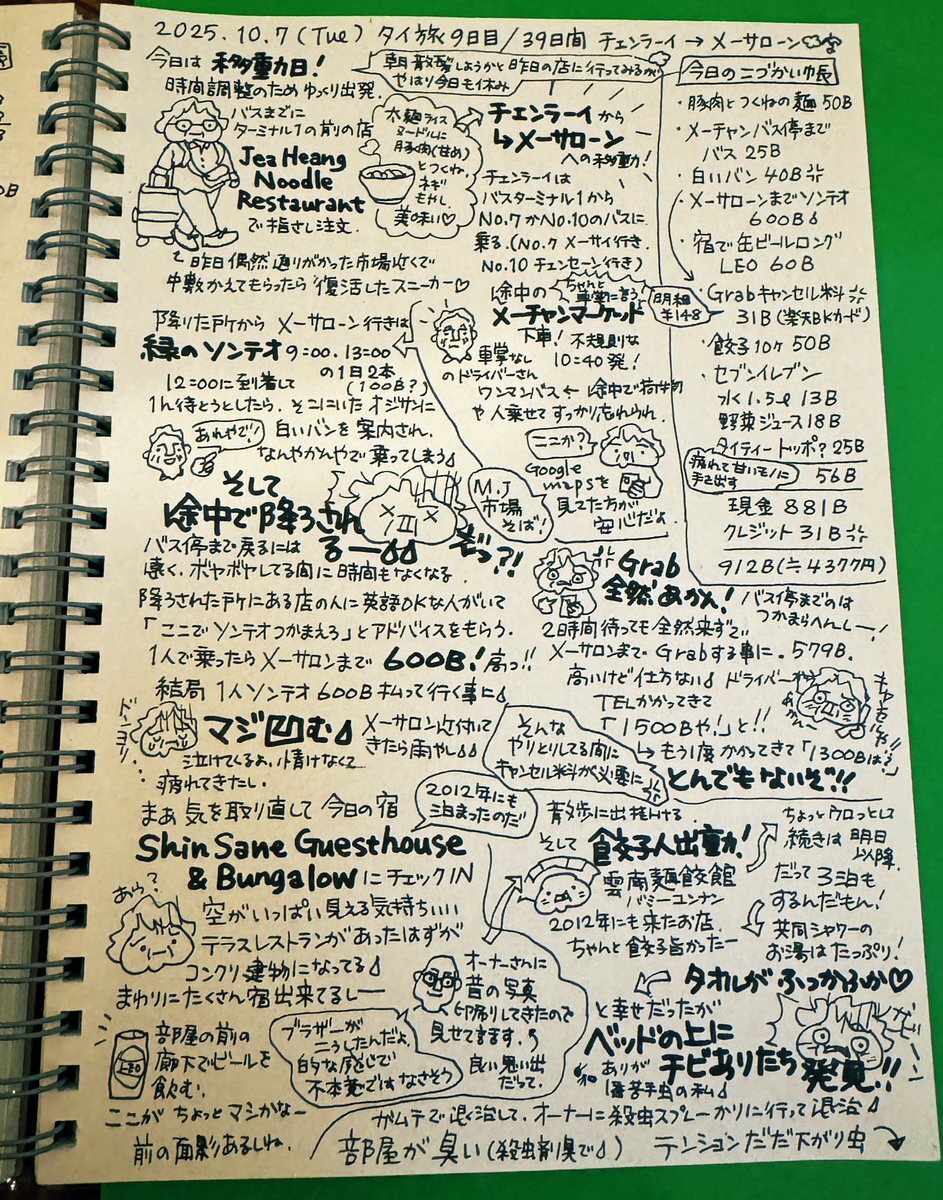 2025.10.7 (Tue) タイ旅9日目/39日間 チェンラーイ → メーサローン
今日は 移動日!
時間調整のため ゆっくり出発.
朝散髪しようかと昨日の店に行ってみるが
やはり今日も休み
バスまでに
ターミナル1の前の店
Jea Heang
Noodle
Restaurant
で指さし注文.
太麺ライス
ヌードルに
豚肉(甘め)
とつくね,
ネギ
もやし.
美味い♡
昨日偶然通りがかった市場近くで
中敷かえてもらったら 復活したスニーカー♡
チェンラーイから
↳メーサローン
への移動!
チェンラーイは
バスターミナル1から
No.7かNo.10のバスに
乗る.(No.7 メーサイ行き.
No.10 チェンセーン行き)
途中の
ちゃんと
車掌に言う
メーチャンマーケット
下車! 不規則な
10:40発!
車掌なし
のドライバーさん
ワンマンバス ← 途中で荷物
や人乗せてすっかり忘れられ
ここか?
Google
mapsを
見てた方が
安心だよ.
M.J
市場
そば!
降りた所から メーサローン行きは
緑のソンテオ 9:00. 13:00
の1日2本
(100B?)
12:00に到着して
1h待とうとしたら. そこにいたオジサンに
あれやで!
白いバンを案内され.
なんやかんやで乗ってしまう
そして
途中で降ろされ
るー
ぎっ?!
バス停まで戻るには
遠く. ボヤボヤしてる間に時間もなくなる.
降ろされた所にある店の人に英語OKな人がいて
「ここでソンテオつかまえろ」とアドバイスをもらう.
1人で乗ったらメーサロンまで 600B! 高っ!!
結局 1人ソンテオ 600B 払って行く事に
ドーヨリ…
マジ凹む
メーサロン近付いて
きたら雨やし
泣けてくるよ. 情けなくて
疲れてきたし.
Grab
全然あかん!
バス停までのは
つかまらへんしー!
2時間待っても全然来ずで
メーサロンまで Grabする事に. 579B.
高いけど仕方ない ドライバーから
TELかかってきて
「1500Bや!」と!!
↳ もう1度かかってきて「1300Bは?」
とんでもないぞ!!
そんな
やりとりしてる間に
キャンセル料が必要に
まぁ 気を取り直して 今日の宿
2012年にも
泊まったのだ
Shin Sane Guesthouse
& Bungalow にチェックIN
あら?
空がいっぱい見える気持ちいい
テラスレストランがあったはずが
コンクリ建物になってる
まわりにたくさん宿出来てるしー
オーナーさんに
昔の写真
印刷してきたので
見せてます.
良い思い出
だって.
ブラザーが
こうしたんだよ.
的な感じで
不本意ではなさそう
LEO
部屋の前の
廊下でビールを
飲む.
ここがちょっとマシかなー
前の面影あるしね.
散歩に出掛ける
そして
餃子人出動!
雲南麺餃館
バミーユンナン
2012年にも来たお店.
ちゃんと餃子旨かったー
ちょっとウロっとして
続きは明日
以降.
だって3泊も
するんだもん!
共同シャワーの
お湯はたっぷり!
タオルがふっかふか♡
と幸せだったが
ベッドの上に
チビありたち
発見!!
ガビーン
ありが
1番苦手虫の私
ガムテで退治して. オーナーに殺虫スプレーかりに行って退治
部屋が臭い(殺虫剤臭で) テンションだだ下がり虫
今日のこづかい帳
・豚肉とつくねの麺 50B
・メーチャンバス停まで
バス 25B
・白いバン 40B
・メーサローンまでソンテオ
600B
・宿で缶ビールロング
LEO 60B
明細
¥148
・Grabキャンセル料
31B(楽天BKカード)
・餃子10ヶ 50B
・セブンイレブン
水1.5ℓ 13B
野菜ジュース18B
タイティートッポ? 25B
疲れて甘いモノに
手を出す
56B
現金 881B
クレジット 31B
912B(≒4377円)